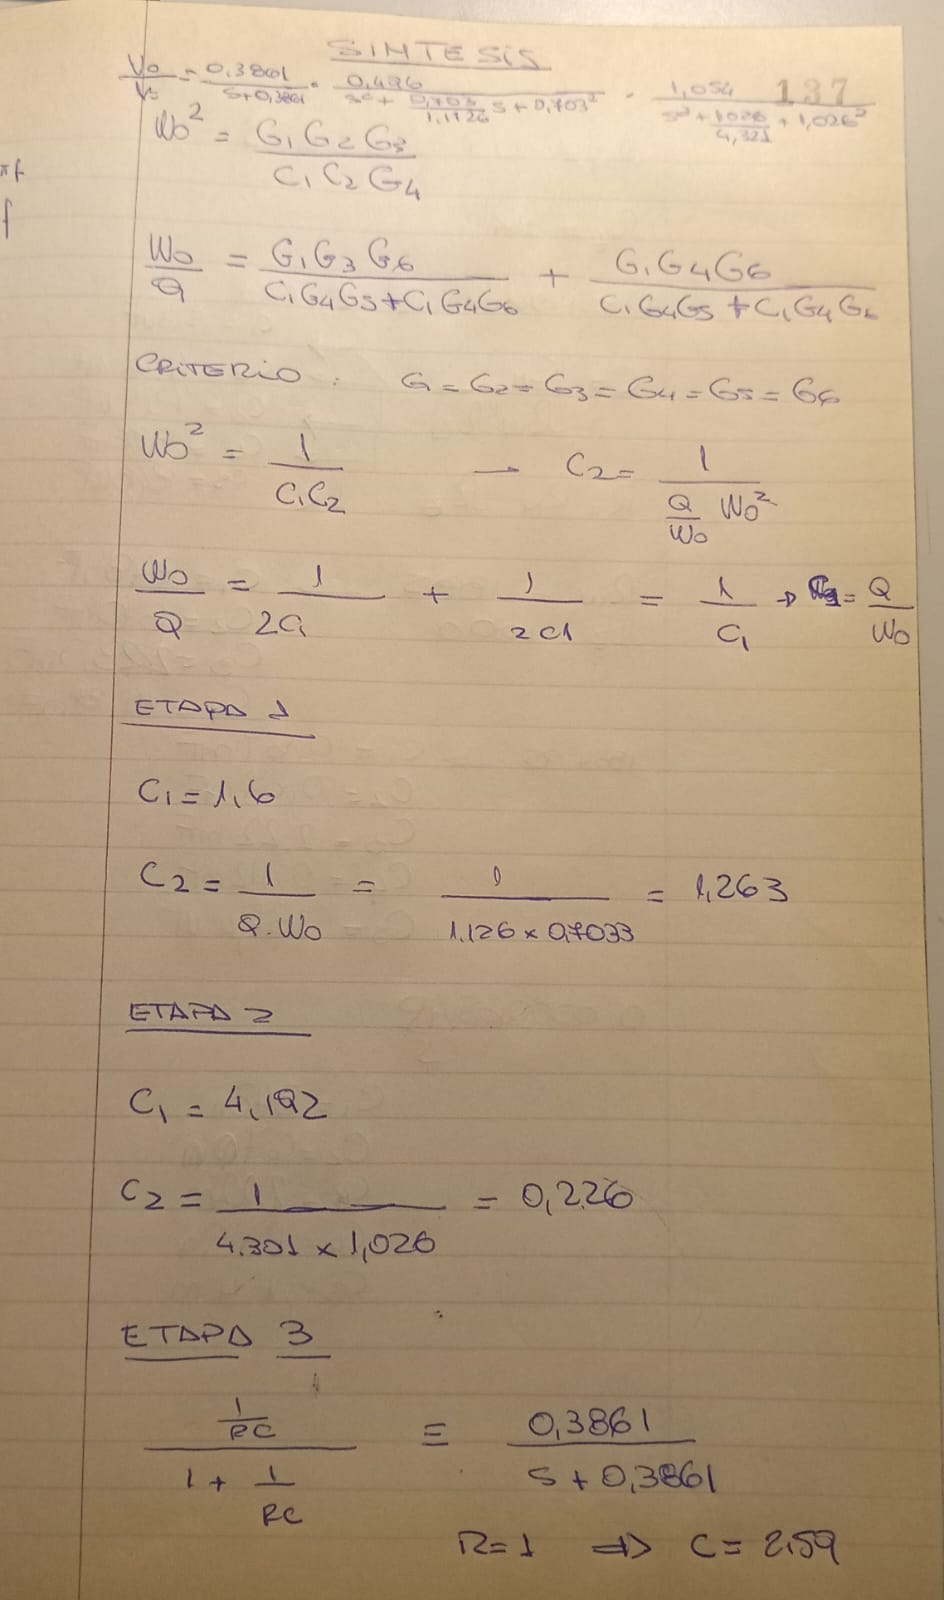 SINTESIS
137
Vo/Vi = 0,3861/(s+0,3861) · 0,496/(s² + (0,703/1,1126) s + 0,703²) · 1,054/(s² + 1,026/4,321 + 1,026²)
Wo² = G1 G2 G3 / C1 C2 G4
Wo/Q = G1G3G6 / (C1G4G5+C1G4G6) + G1G4G6 / (C1G4G5+C1G4G6)
CRITERIO : G = G2 = G3 = G4 = G5 = G6
Wo² = 1/(C1C2) → C2 = 1/((Q/Wo) Wo²)
Wo/Q = 1/(2C1) + 1/(2C1) = 1/C1 → = Q/Wo
ETAPA 1
C1 = 1,6
C2 = 1/(Q.Wo) = 1/(1.126 x 0,7033) = 1,263
ETAPA 2
C1 = 4,192
C2 = 1/(4.301 x 1,026) = 0,226
ETAPA 3
(1/RC)/(1 + 1/RC) = 0,3861/(s + 0,3861)
R=1 ⇒ C = 2,59